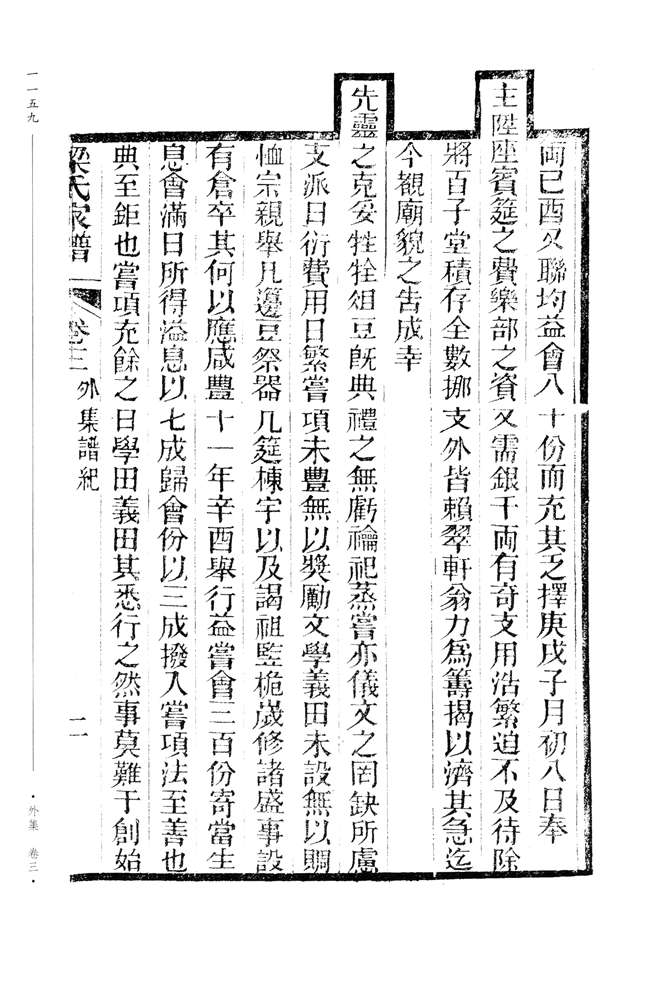 兩己酉又聯均益會八十份而充其乏擇庚戌子月初八日奉
主陞座賓筵之費樂部之資又需銀千兩有奇支用浩繁迫不及待除
將百子堂積存全數挪支外皆賴翠軒翁力為籌揭以濟其急迄
今觀廟貌之告成幸
先靈之克妥牲牷俎豆旣典禮之無虧禴祀蒸嘗亦儀文之罔缺所慮
支派日衍費用日繁嘗項未豐無以獎勵文學義田未設無以賙
恤宗親舉凡籩豆祭器几筵棟宇以及謁祖監桅歲修諸盛事設
有倉卒其何以應咸豐十一年辛酉舉行益嘗會三百份寄當生
息會滿日所得溢息以七成歸會份以三成撥入嘗項法至善也
典至鉅也嘗項充餘之日學田義田其悉行之然事莫難于創始
梁氏家譜 卷三 外集譜紀 二
一一五九
·外集 卷三·